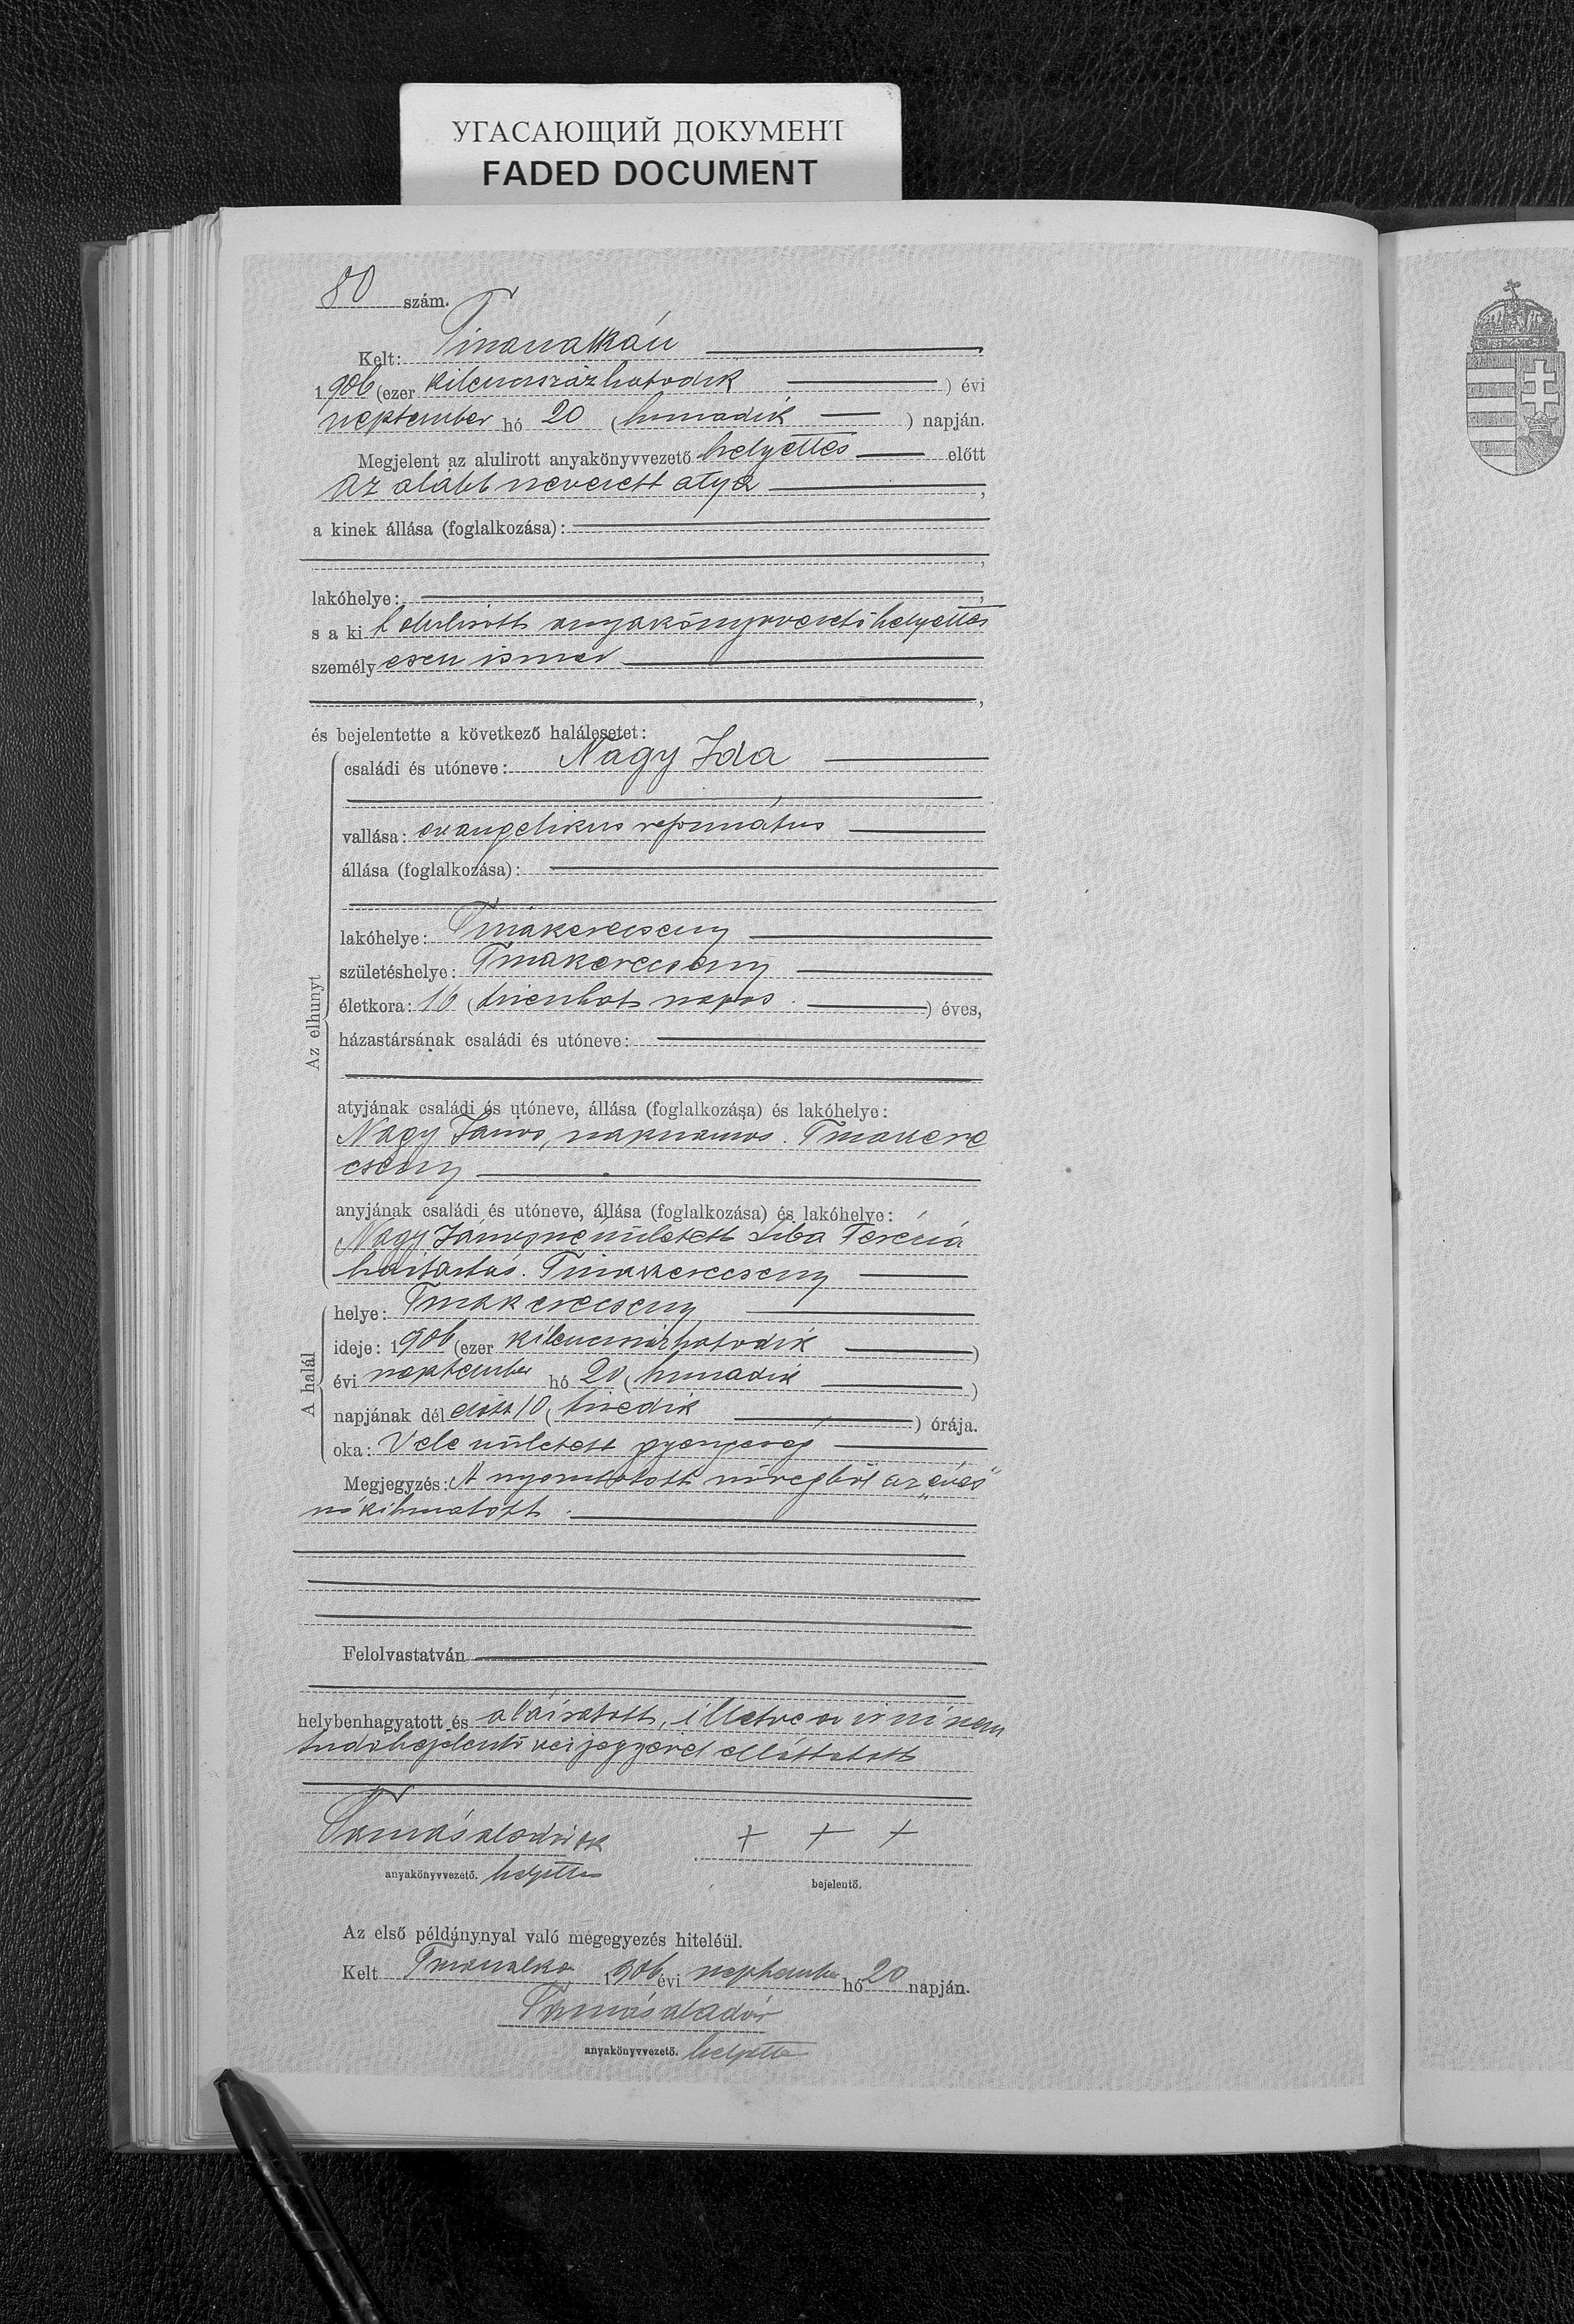 УГАСАЮЩИЙ ДОКУМЕНТ
FADED DOCUMENT
80 szám.
Kelt: Tiszasalkán
1906 (ezer kilencszázhatodik ) évi
szeptember hó 20 (huszadik ) napján.
Megjelent az alulirott anyakönyvvezető helyettes előtt
az alább nevezett atya ,
a kinek állása (foglalkozása):
lakóhelye: ,
s a ki t alulirott anyakönyvvezető helyettes
személy esen ismer
,
és bejelentette a következő halálesetet:
Az elhunyt
családi és utóneve: Nagy Ida
vallása: evangelikus református
állása (foglalkozása):
lakóhelye: Tiszakerecseny
születéshelye: Tiszakerecseny
életkora: 16 (tizenhat napos ) éves,
házastársának családi és utóneve:
atyjának családi és utóneve, állása (foglalkozása) és lakóhelye:
Nagy János, napszámos. Tiszakere
cseny
anyjának családi és utóneve, állása (foglalkozása) és lakóhelye:
Nagy Jánosné született Liba Terézia
háztartás. Tiszakerecseny
A halál
helye: Tiszakerecseny
ideje: 1906 (ezer kilencszázhatodik )
évi szeptember hó 20 (huszadik )
napjának dél előtt 10 (tizedik ) órája.
oka: Vele született gyengeség
Megjegyzés: A nyomtatott szövegből az „éves"
szó kihuzatott.
Felolvastatván
helybenhagyatott és aláiratott, illetve az irni nem
tudó bejelentő kézjegyével elláttatott
Tamás Aladár + + +
anyakönyvvezető. helyettes bejelentő.
Az első példánynyal való megegyezés hiteléül.
Kelt 1906 évi szeptember hó 20 napján.
Tamás Aladár
anyakönyvvezető. helyettes